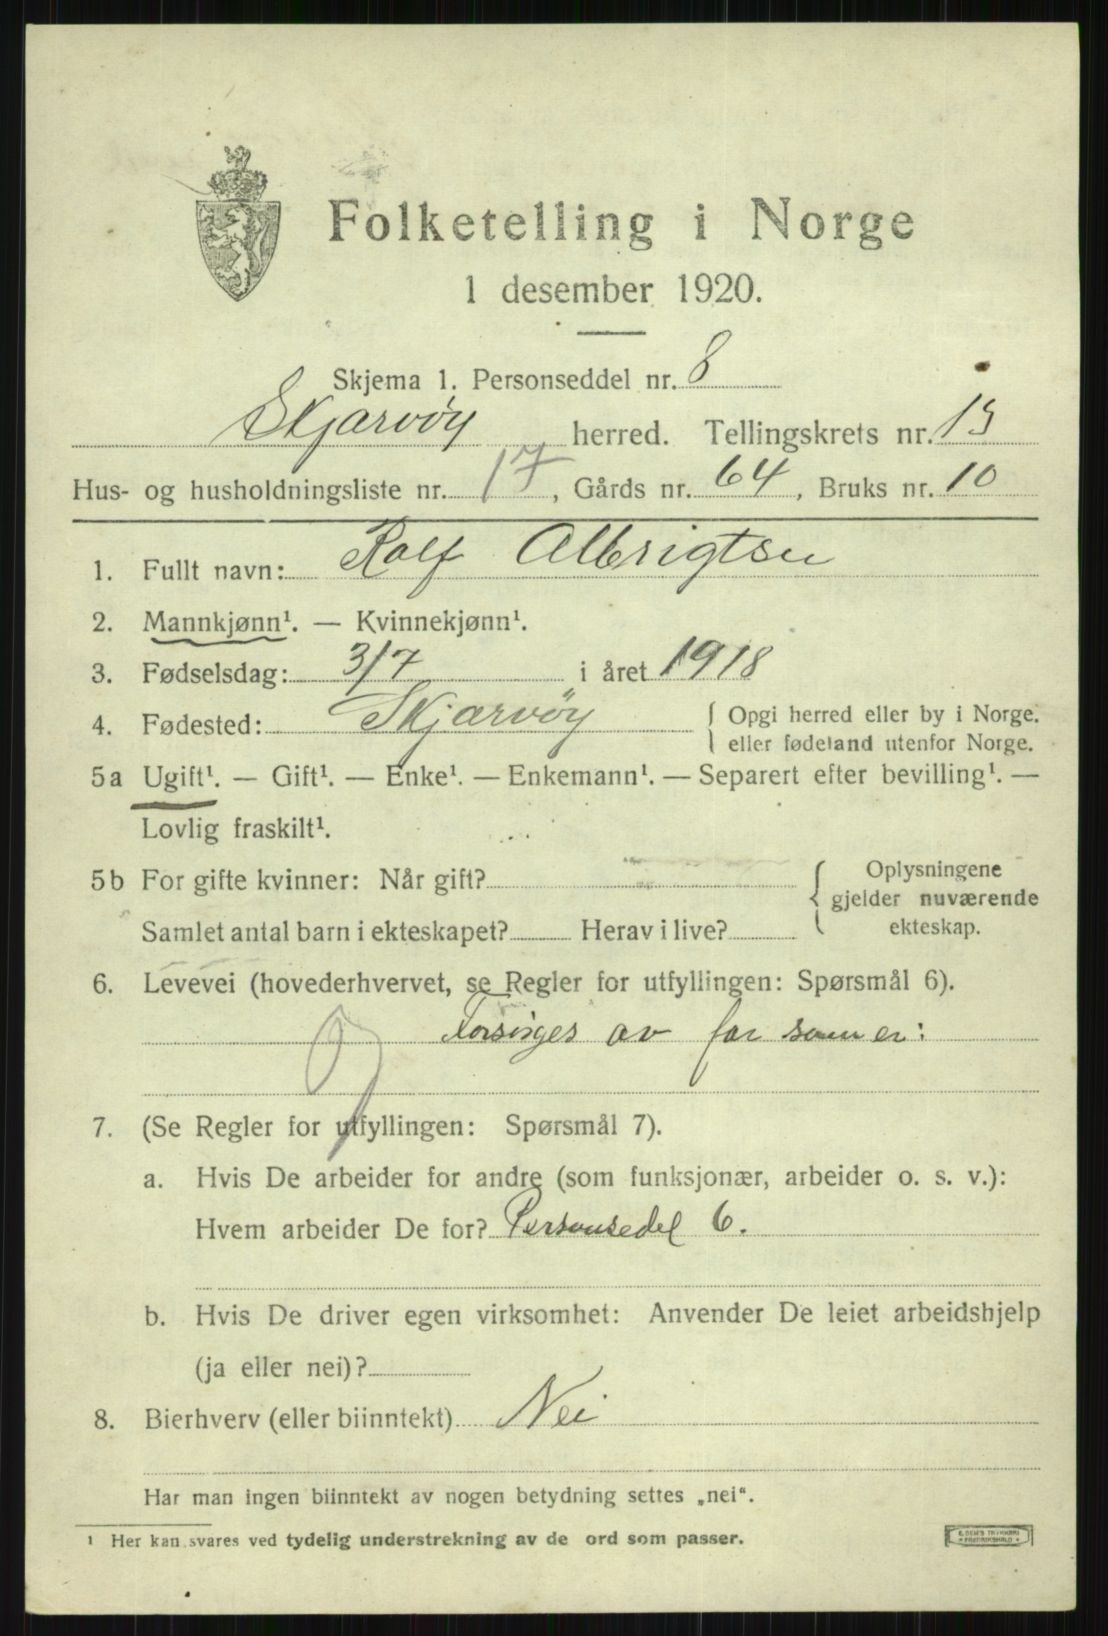 Folketelling i Norge
1 desember 1920.
Skjema 1. Personseddel nr. 8
Skjærvöy herred. Tellingskrets nr. 15
Hus- og husholdningsliste nr. 17, Gårds nr. 64, Bruks nr. 10
1. Fullt navn: Rolf Albrigtsen
2. Mannkjønn¹. — Kvinnekjønn¹.
3. Fødselsdag: 3/7 i året 1918
4. Fødested: Skjærvöy { Opgi herred eller by i Norge.
eller fødeland utenfor Norge.
5a Ugift¹. — Gift¹. — Enke¹. — Enkemann¹. — Separert efter bevilling¹. —
Lovlig fraskilt¹.
5b For gifte kvinner: Når gift? { Oplysningene
gjelder nuværende
Samlet antal barn i ekteskapet? Herav i live? ekteskap.
6. Levevei (hovederhvervet, se Regler for utfyllingen: Spørsmål 6).
Forsörges av far som er:
7. (Se Regler for utfyllingen: Spørsmål 7).
a. Hvis De arbeider for andre (som funksjonær, arbeider o. s. v.):
Hvem arbeider De for? Personsedel 6.
b. Hvis De driver egen virksomhet: Anvender De leiet arbeidshjelp
(ja eller nei)?
8. Bierhverv (eller biinntekt) Nei
Har man ingen biinntekt av nogen betydning settes „nei“.
¹ Her kan svares ved tydelig understrekning av de ord som passer.